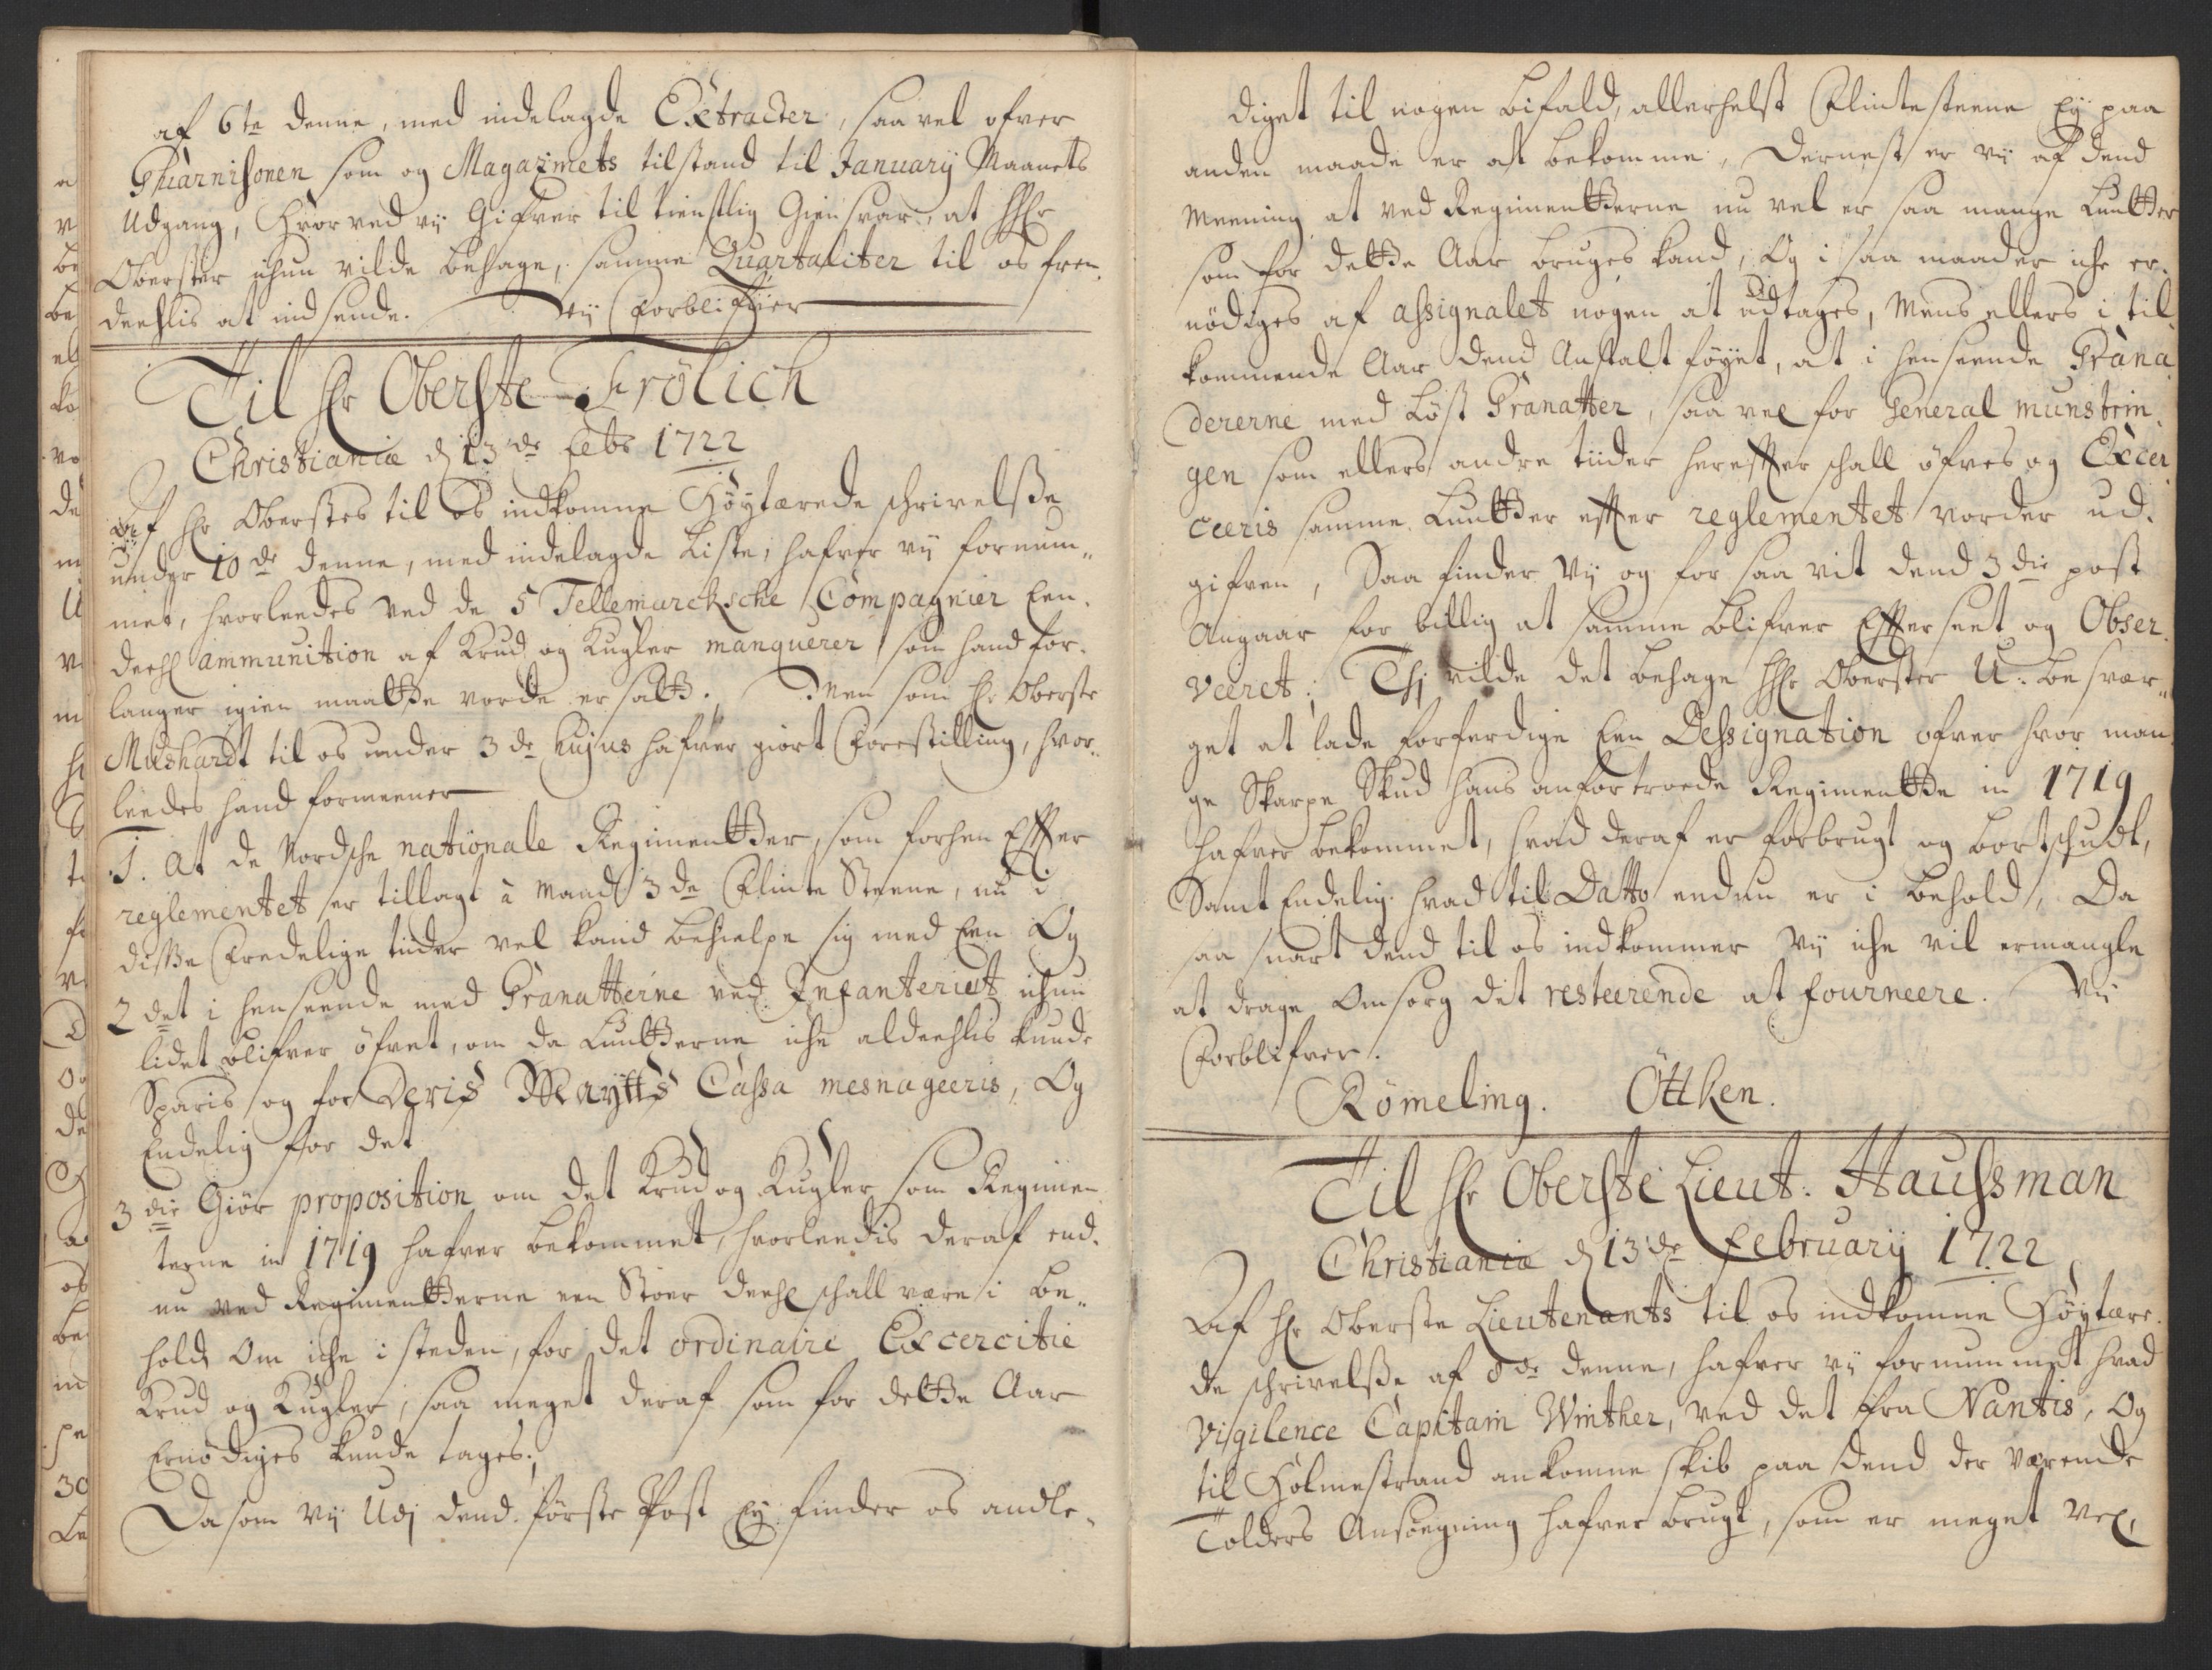 af 6te denne, med indelagde Extracter, saa vel ofver
Guarnisonen som og Magazinets tilstand til January Maanets
Udgang, Hvor ved vij Gifver til tienstlig Giensvar, at HHr
Oberster ichun vilde behage, samme Quartaliter til os frem-
deehlis at indsende. Vij Forblifver
Til Hr Oberste Frölich
Christiania d 13de Febr 1722
Af Hr Oberstes til os indkomne Höytærede schrivelsse
under 10de denne, med indelagde Liste, hafver vij fornum-
met, hvorleedes ved de 5 Tellemarcksche Compagnier Een
Deehl ammunition af Krud og Kugler manquerer, som hand for-
langer igien maatte vorde ersatt. Men som Hr Oberste
Mushardt til os under 3de hujus hafver giort Forestilling, hvor-
leedes hand formeener
1. At de Nordsche nationale Regimentter, som forhen Effter
reglementet er tillagt à Mand 3de Flinte Steene, nu i
disse Fredelige tiider vel kand behielpe sig med Een Og
2det i henseende med Granatterne ved Infanteriet ichun
lidet blifver öfvet, om da Luntterne iche aldeehlis kunde
Sparis og for Deris Maytts Cassa mesnageeris, Og
Endelig for det
3die Giör proposition om det Krud og Kugler som Regimen-
terne in 1719 hafver bekommet, hvorleedis deraf end-
nu ved Regimentterne een Stoer deehl schall være i be-
hold, Om iche i steden, for det ordinaire Excercitie
Krud og Kugler, saa meget deraf som for dette Aar
Ernödiges kunde tages;
Da som vij Udj dend förste Post Ey finder os andle-
diget til nogen bifald, allerhelst Flintesteene Ey paa
anden maade er at bekomme, Dernest er vij af dend
Meening at ved Regimentterne nu vel er saa mange Luntter
som for dette Aar bruges kand, Og i saa maader iche er-
nödiges af assignalet nogen at udtages, Mens ellers i til-
kommende Aar dend Anstalt föyet, at i henseende Grana-
dererne med Löst Granatter, saa vel for General munstrin-
gen som ellers andre tiider hereffter schall öfves og Excer-
ceeris samme Luntter effter reglementet vorder ud-
gifven, Saa finder Vij og for saa vit dend 3die post
Angaar for billig at samme blifver Effterseet og Obser-
veeret; Thj vilde det behage HHr Oberster U-besvær-
get at lade forferdige Een Dessignation ofver hvor man-
ge Skarpe Skud hans anfortroede Regimentte in 1719
hafver bekommet, hvad deraf er forbrugt og bortschudt,
Samt Endelig hvad til Datto endnu er i behold, Da
saa snart dend til os indkommer Vij iche vil ermangle
at drage Omsorg dit resteerende at fourneere. Vij
Forblifver.
Römeling. Öttken.
Til Hr Oberste Lieut: Haussman
Christiania d 13de February 1722
Af Hr Oberste Lieutenants til os indkomne Höytære-
de schrivelsse af 8de denne, hafver vij fornummet hvad
Vigilence Capitain Winther, ved det fra Nantis, Og
til Holmestrand ankomne skib paa dend der værende
Tolders Ansoegning hafver brugt, som er meget Vel,